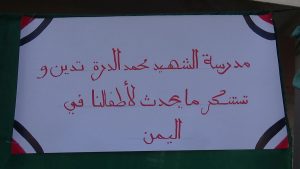 مدرسة الشهيد محمد الدرة تدين و
تستنكر ما يحدث لأطفالنا في
اليمن